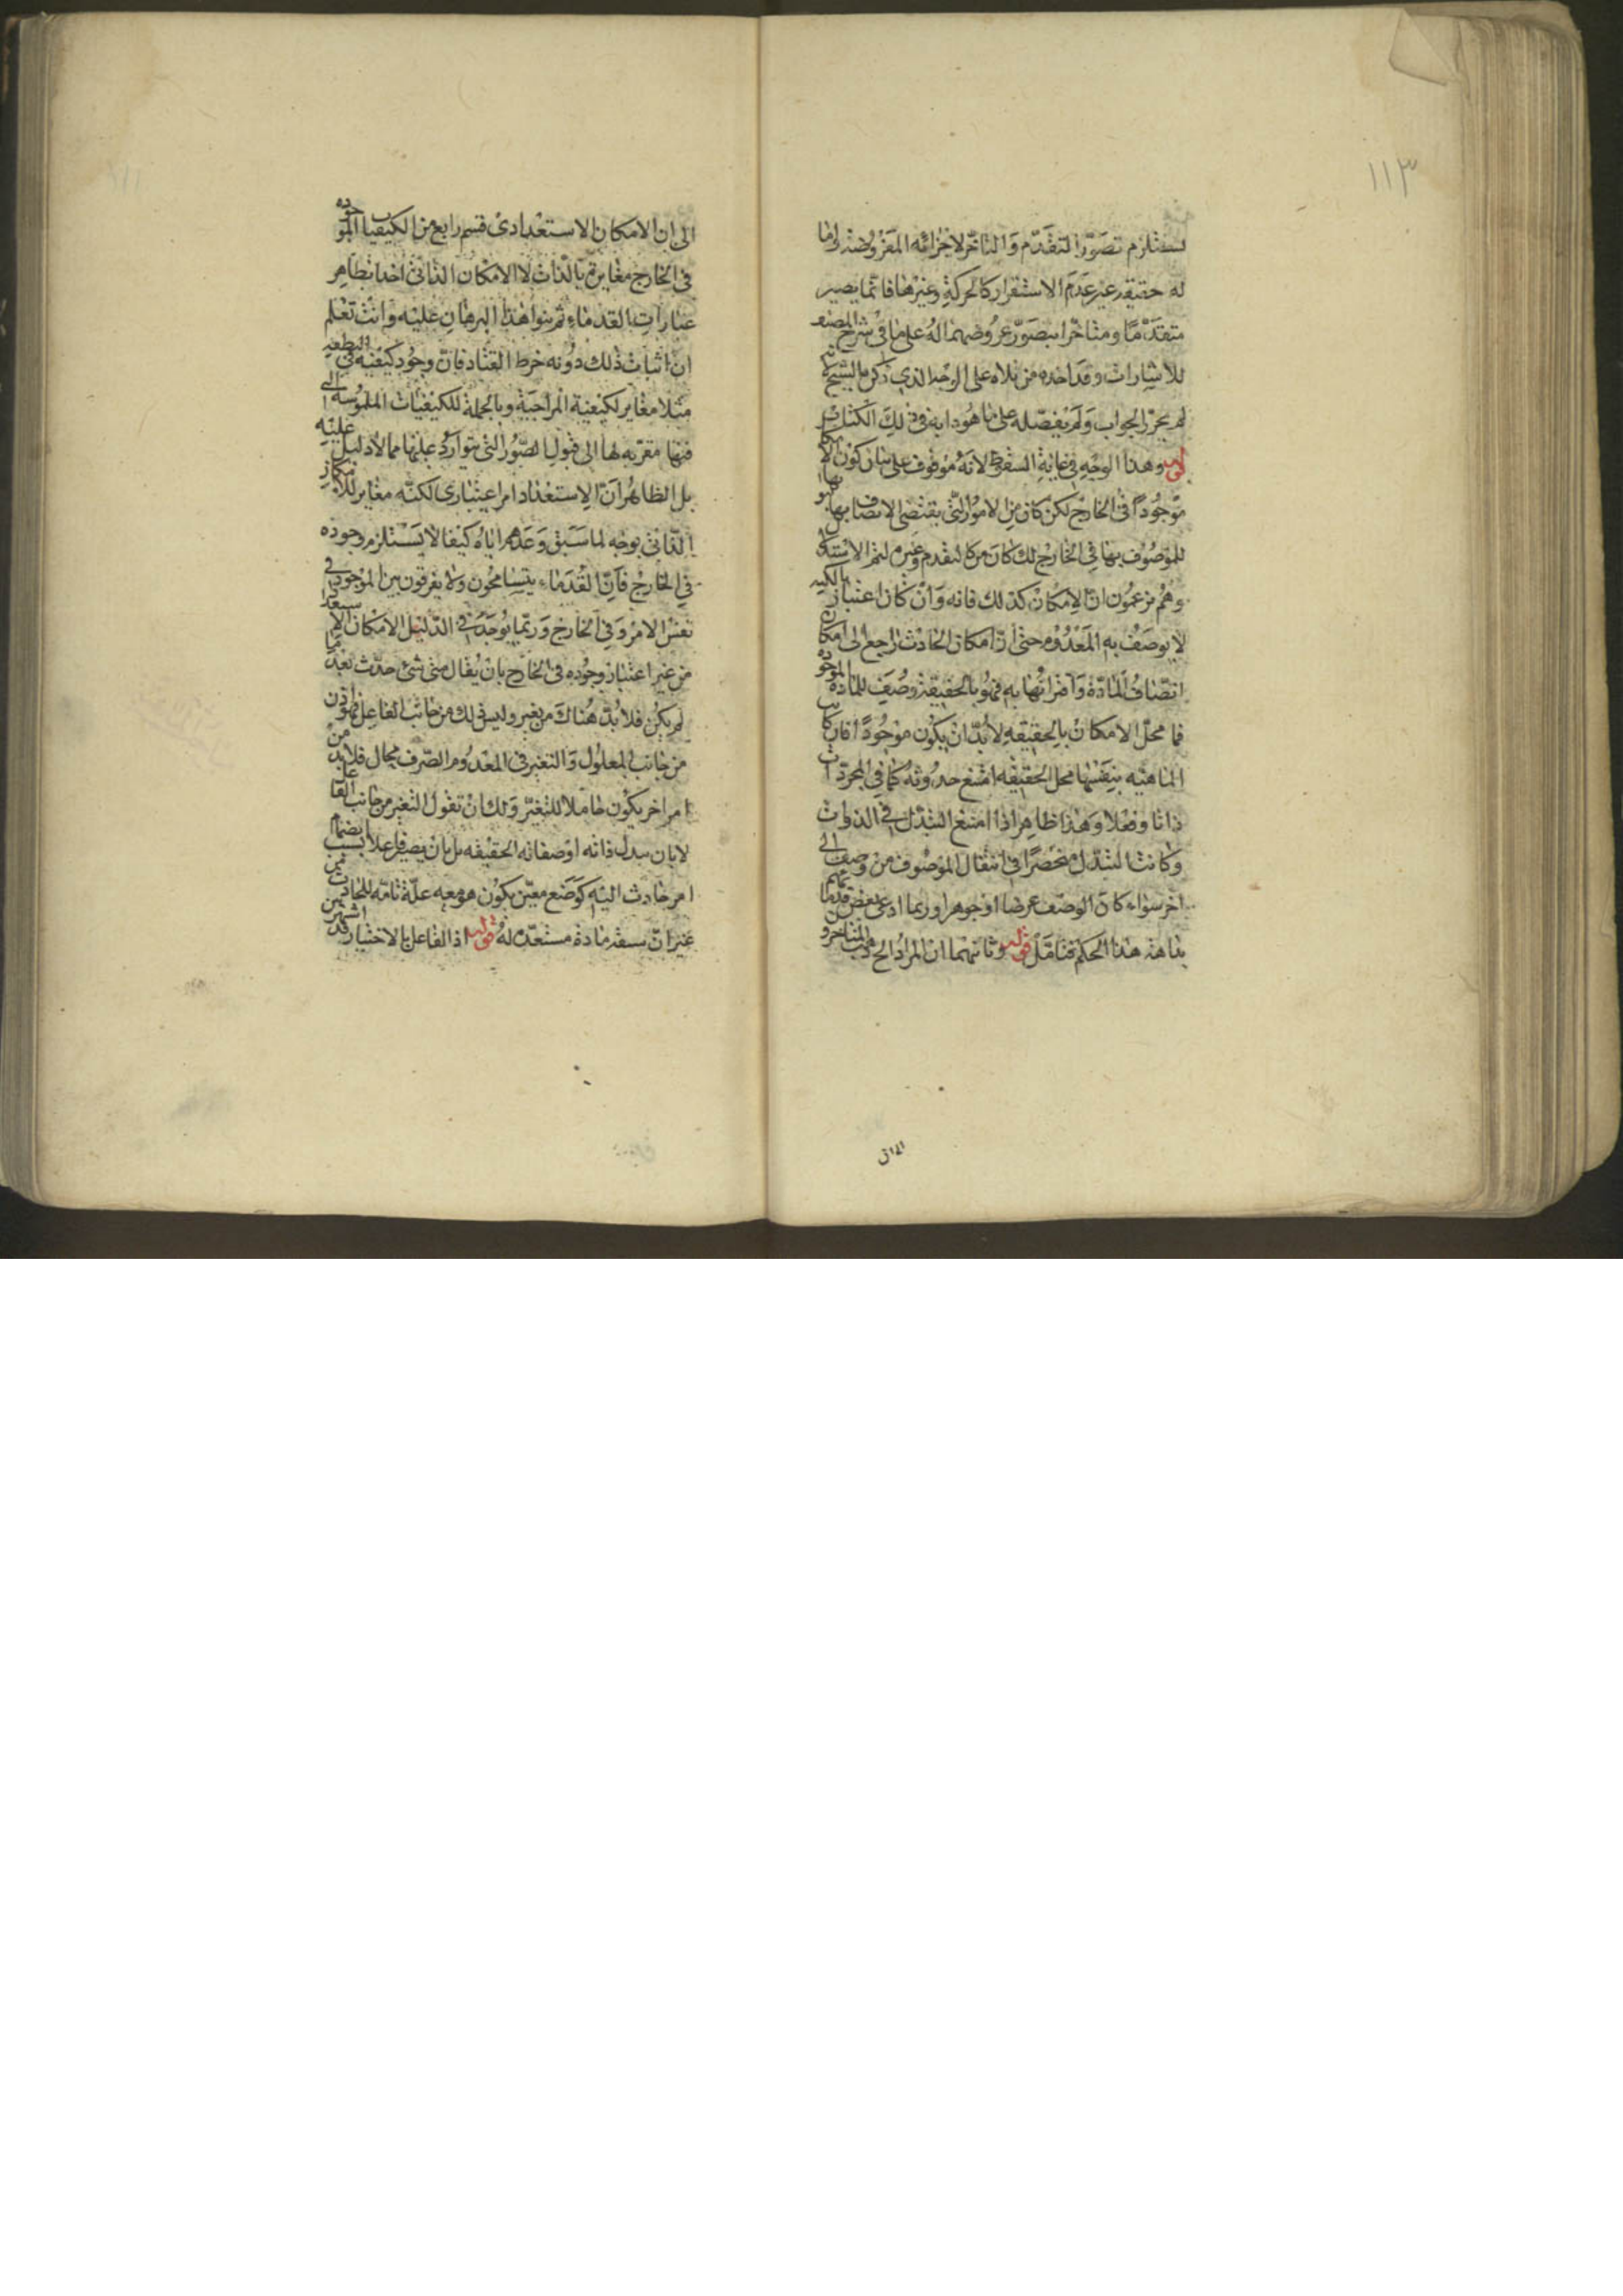 ١١٣
يستلزم تصور التقدم والتاخر لاجزائه المفروضة واما
له حقيقة غير عدم الاستقرار كالحركة وغيرها فانما يصير
متقدما ومتاخرا بتصور عروضهما له على ما في شرح المصنف
للاشارات وقد اخذه من تلاه على الوجه الذي ذكره الشيخ لانه
لم يحرر الجواب ولم يفصله على ما هو دابه في ذلك الكتاب
قوله وهذا الوجه في غاية السقوط لانه موقوف على بيان كون الامكان
موجودا في الخارج لكن كان من الامور التي يقتضي الاتصاف بها
للموصوف بها في الخارج لك كان من كالتقدم وغيره لتم الاستدلال
وهم يزعمون ان الامكان كذلك فانه وان كان اعتباريا لكنه
لا يوصف به المعدوم حتى ان امكان الحادث راجع الى امكان
اتصاف المادة واقترانها به فهو بالحقيقة وصف للمادة الموجودة
فما محل الامكان بالحقيقة لا بد ان يكون موجودا فان كانت
الماهية بنفسها محل الحقيقة امتنع حدوثه كما في المجردات
ذاتا وفعلا وهذا ظاهر اذا امتنع التبدل في الذوات
وكانت التبدل منحصرا في انتقال الموصوف من وصف الى
اخر سواء كان الوصف عرضا او جوهرا وربما ادعى بعض قدمائهم
بداهة هذا الحكم فتامل قوله وثانيهما ان المراد الخ ذهب المتاخرون
الى ان الامكان الاستعدادي قسم رابع من الكيفيات الموجودة
في الخارج مغايرة بالذات لا الامكان الذاتي اخذا بظاهر
عبارات القدماء ثم بنوا هذا البرهان عليه وانت تعلم
ان اثبات ذلك دونه خرط القتاد فان وجود كيفية في النطفة
مثلا مغاير لكيفية المزاجية وبالجملة للكيفيات الملموسة التي
فيها مقربة لها الى قبول الصور التي تتوارد عليها مما لا دليل عليه
بل الظاهر ان الاستعداد امر اعتباري لكنه مغاير للامكان
الذاتي بوجه لما سبق وعدهم اياه كيفا لا يستلزم وجوده
في الخارج فان القدماء يتسامحون ولا يفرقون بين الموجود في
نفس الامر وفي الخارج وربما يوجد في الدليل الامكان الاستعدادي
من غير اعتبار وجوده في الخارج بان يقال متى شئ حدث بعد ما
لم يكن فلا بد هناك من تغير وليس ذلك من جانب الفاعل فهو اذن
من جانب المعلول والتغير في المعدوم الصرف محال فلا بد من
امر اخر يكون حاملا للتغير ولك ان تقول التغير من جانب الفاعل
لا بان يبدل ذاته او صفاته الحقيقه بل بان يصير فاعلا بسبب انضمام
امر حادث اليه كوضع معين يكون هو معه علة تامة للحادث من
غير ان يسبقه مادة مستعدة له قوله اذ الفاعل بالاختيار قد اشتهر